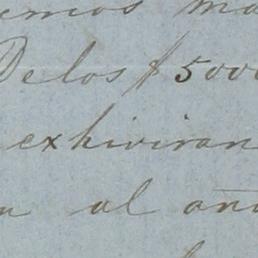 emos ma
Delos $ 5000
exhiviran
al an